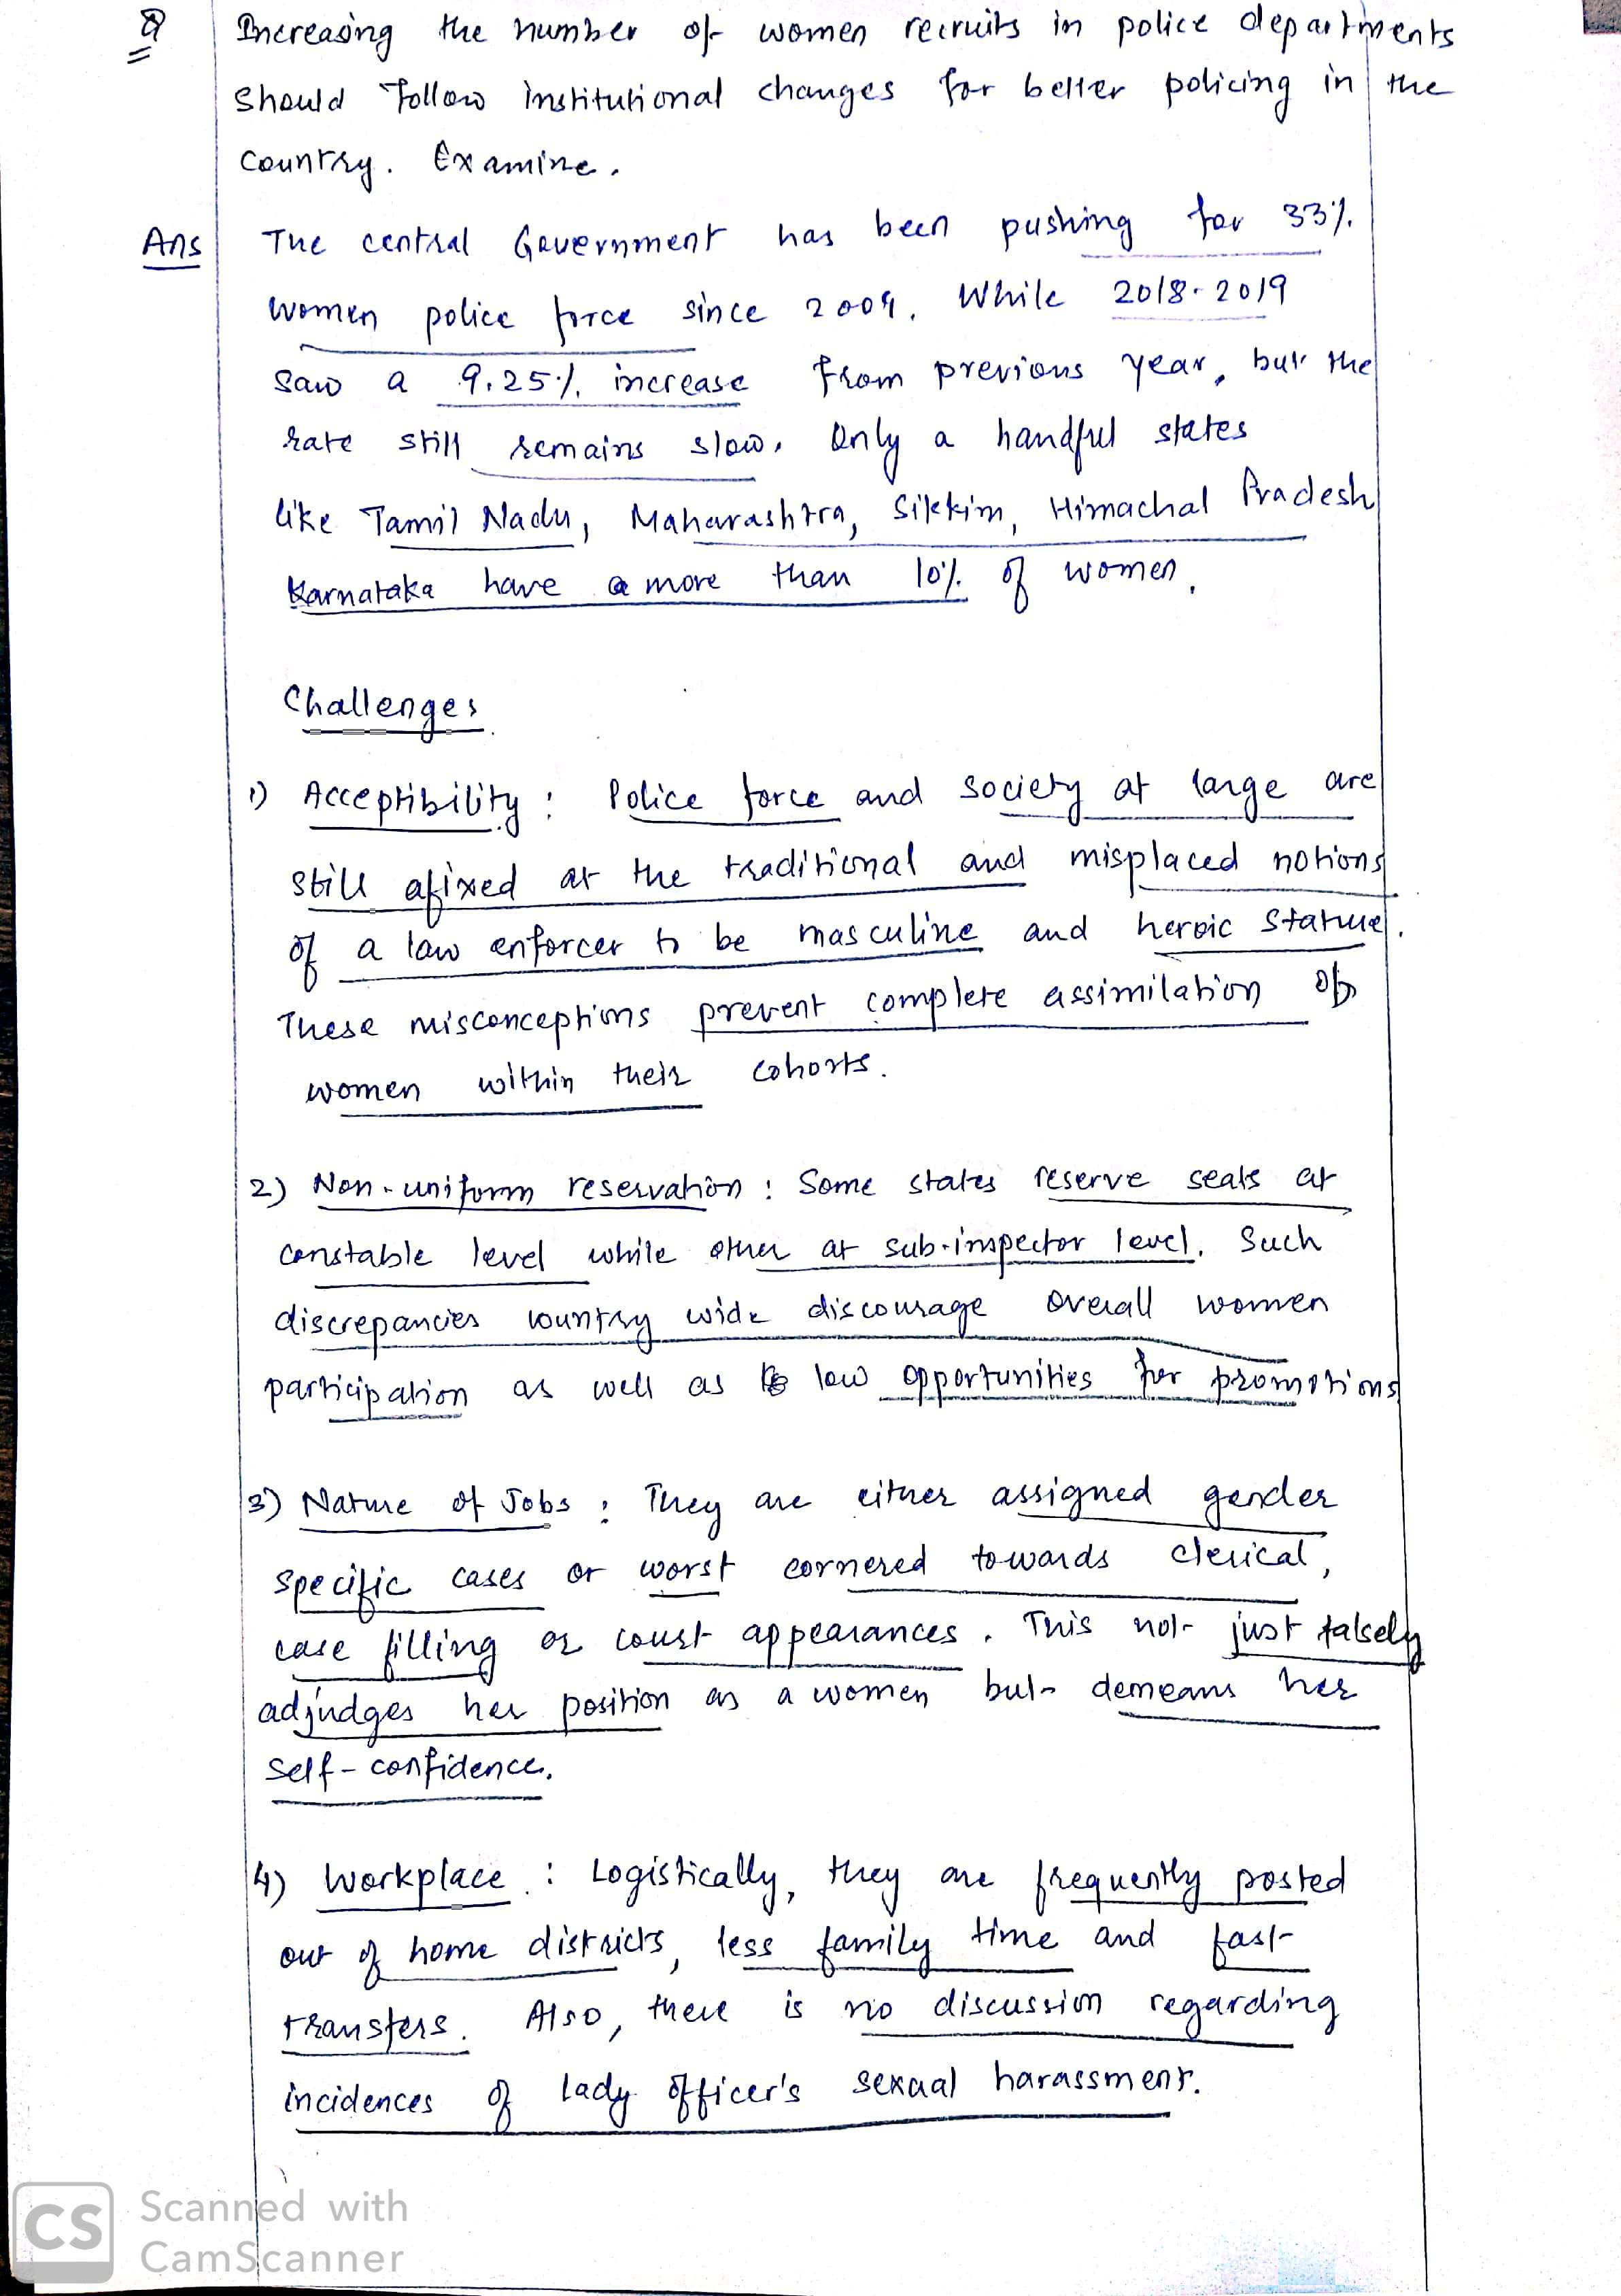 Q Increasing the number of women recruits in police departments
should follow institutional changes for better policing in the
country. Examine.
Ans The central Government has been pushing for 33%
women police force since 2009. While 2018-2019
saw a 9.25% increase from previous year, but the
rate still remains slow. Only a handful states
like Tamil Nadu, Maharashtra, Sikkim, Himachal Pradesh
Karnataka have a more than 10% of women.
Challenges
1) Acceptibility : Police force and society at large are
still afixed at the traditional and misplaced notions
of a law enforcer to be masculine and heroic stature.
These misconceptions prevent complete assimilation of
women within their cohorts.
2) Non-uniform reservation : Some states reserve seats at
constable level while other at sub-inspector level. Such
discrepancies country wide discourage overall women
participation as well as low opportunities for promotions
3) Nature of Jobs : They are either assigned gender
specific cases or worst cornered towards clerical,
case filling or court appearances. This not just falsely
adjudges her position as a women but demeans her
self-confidence.
4) Workplace : Logistically, they are frequently posted
out of home districts, less family time and fast
transfers. Also, there is no discussion regarding
incidences of lady officer's sexual harassment.
CS Scanned with
CamScanner